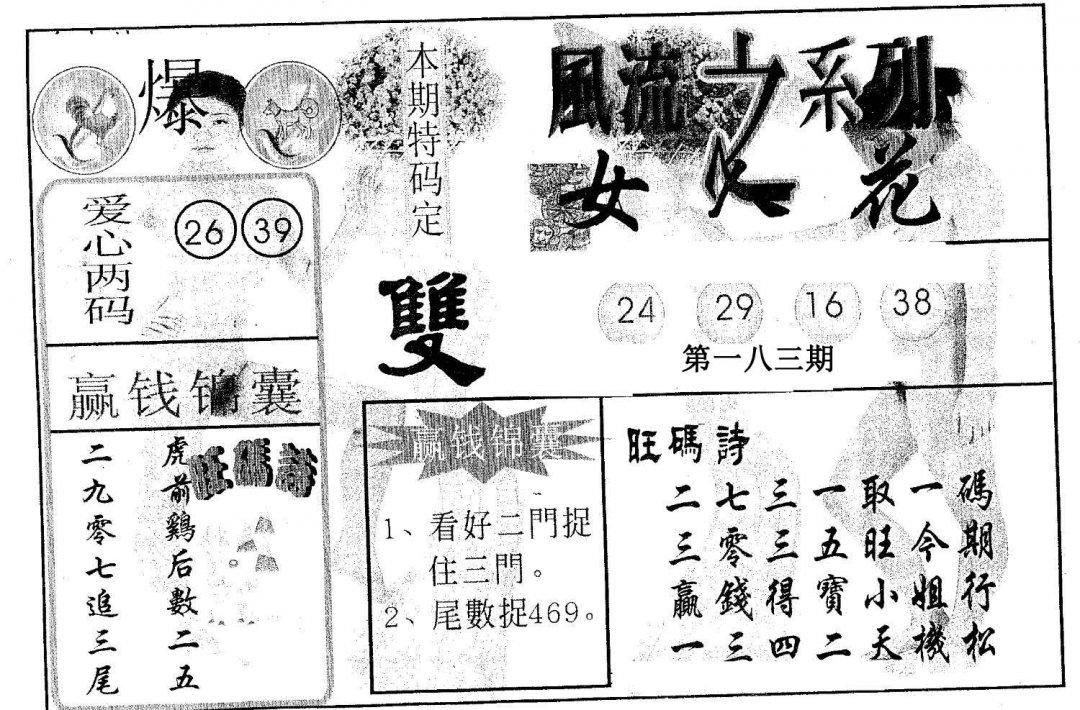 風流女人花系列
爆
本期特码定
雙
爱心两码
26 39
24 29 16 38
第一八三期
赢钱锦囊
虎前鷄后數二五
二九零七追三尾
旺碼詩
赢钱锦囊
1、看好二門捉
住三門。
2、尾數捉469。
旺碼詩
二七三一取一碼
三零三五旺今期
贏錢得寶小姐行
一三四二天機松